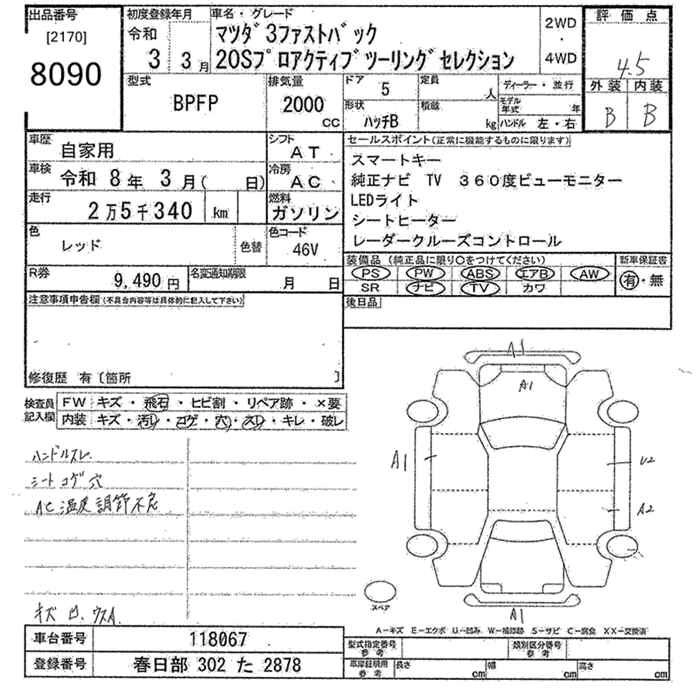 出品番号
[2170]
8090
初度登録年月
令和
3 3月
車名・グレード
マツダ3ファストバック
20Sプロアクティブツーリングセレクション
2WD
・
4WD
評価点
4.5
外装 内装
B B
型式
BPFP
排気量
2000
CC
ドア
5
形状
ハッチB
定員
人
積載
kg
ディーラー・並行
モデル年式 年
ハンドル 左・右
車歴
自家用
車検
令和 8年 3月( 日)
走行
2万5千340 km
シフト
AT
冷房
AC
燃料
ガソリン
色
レッド
色替
色コード
46V
R券
9,490円
名変通知期限
月 日
セールスポイント(正常に機能するものに限ります)
スマートキー
純正ナビ TV 360度ビューモニター
LEDライト
シートヒーター
レーダークルーズコントロール
装備品(純正品に限り○をつけてください)
PS PW ABS エアB AW
SR ナビ TV カワ
新車保証書
有・無
後日品
注意事項申告欄(不具合内容等は具体的に記入して下さい)
修復歴 有〔箇所 〕
検査員
記入欄
FW キズ・飛石・ヒビ割・リペア跡・×要
内装 キズ・汚レ・コゲ・穴・スレ・キレ・破レ
ハンドルスレ
シートコゲ穴
AC温度調節不良
キズ 凹 ウスA
A1
A1
A1
U2
A2
A1
スペア
A−キズ E−エクボ U−凹み W−補修跡 S−サビ C−腐食 XX−交換済
車台番号 118067
登録番号 春日部 302 た 2878
型式指定番号
参考
類別区分番号
参考
車庫証明用
参考
長さ cm 幅 cm 高さ cm